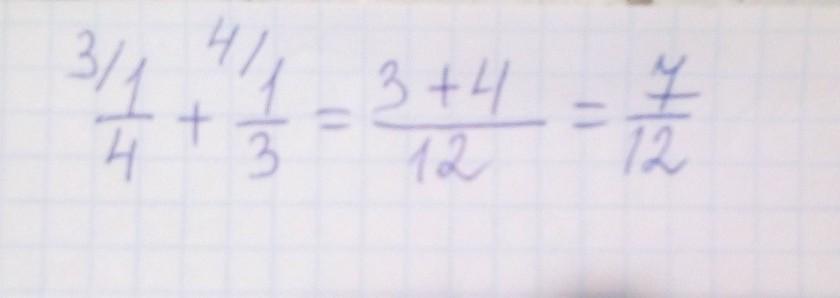 3/1/4 + 4/1/3 = 3+4/12 = 7/12